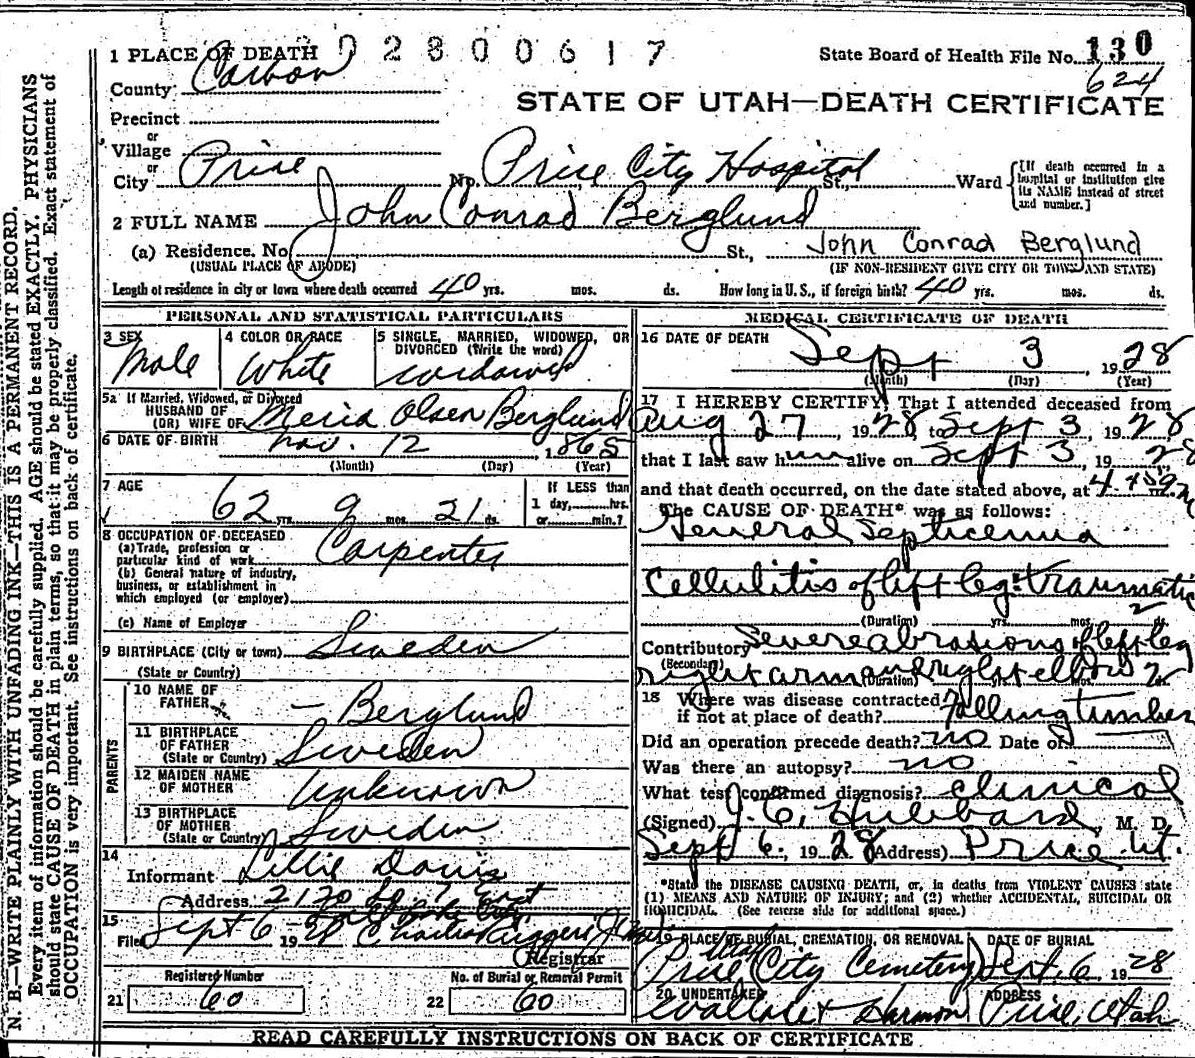 1 PLACE OF DEATH 2 0 2 8 0 0 6 1 7
State Board of Health File No. 130
624
County Carbon
STATE OF UTAH—DEATH CERTIFICATE
Precinct
or
Village
or
City Price No. Price City Hospital St., Ward
[If death occurred in a hospital or institution give its NAME instead of street and number.]
2 FULL NAME John Conrad Berglund
(a) Residence. No. St., John Conrad Berglund
(USUAL PLACE OF ABODE) (IF NON-RESIDENT GIVE CITY OR TOWN AND STATE)
Length of residence in city or town where death occurred 40 yrs. mos. ds. How long in U. S., if foreign birth? 40 yrs. mos. ds.
PERSONAL AND STATISTICAL PARTICULARS
3 SEX
Male
4 COLOR OR RACE
White
5 SINGLE, MARRIED, WIDOWED, OR DIVORCED (Write the word)
widowed
5a If Married, Widowed, or Divorced
HUSBAND OF
(OR) WIFE OF Meria Olsen Berglund
6 DATE OF BIRTH Nov. 12, 1865
(Month) (Day) (Year)
7 AGE
62 yrs. 9 mos. 21 ds.
If LESS than
1 day, hrs.
or min.?
8 OCCUPATION OF DECEASED
(a) Trade, profession or
particular kind of work Carpenter
(b) General nature of industry,
business, or establishment in
which employed (or employer)
(c) Name of Employer
9 BIRTHPLACE (City or town) Sweden
(State or Country)
PARENTS
10 NAME OF
FATHER — Berglund
11 BIRTHPLACE
OF FATHER
(State or Country) Sweden
12 MAIDEN NAME
OF MOTHER Unknown
13 BIRTHPLACE
OF MOTHER
(State or Country) Sweden
14
Informant Lillie Davis
Address 2120 So 7 East
Salt Lake City
15
Filed Sept 6 1928 Charles Ruggeri
Registrar
Registered Number
21 60
No. of Burial or Removal Permit
22 60
MEDICAL CERTIFICATE OF DEATH
16 DATE OF DEATH
Sept 3, 1928
(Month) (Day) (Year)
17 I HEREBY CERTIFY, That I attended deceased from
Aug 27, 1928, to Sept 3, 1928
that I last saw him alive on Sept 3, 19 28
and that death occurred, on the date stated above, at 4:45 m.
The CAUSE OF DEATH* was as follows:
General Septicemia
Cellulitis of left leg: traumatic
(Duration) yrs. mos. ds.
Contributory Severe abrasions of left leg
(Secondary) right arm and right elbow
(Duration)
18 Where was disease contracted
if not at place of death? Falling timber
Did an operation precede death? no Date of
Was there an autopsy? no
What test confirmed diagnosis? clinical
(Signed) J. C. Hubbard, M. D.
Sept 6, 1928 (Address) Price Ut.
*State the DISEASE CAUSING DEATH, or, in deaths from VIOLENT CAUSES state
(1) MEANS AND NATURE OF INJURY; and (2) whether ACCIDENTAL, SUICIDAL OR
HOMICIDAL. (See reverse side for additional space.)
19 PLACE OF BURIAL, CREMATION, OR REMOVAL
Price City Cemetery
Utah
DATE OF BURIAL
Sept. 6 1928
20 UNDERTAKER
Wallace & Harmon
ADDRESS
Price, Utah
READ CAREFULLY INSTRUCTIONS ON BACK OF CERTIFICATE
N. B.—WRITE PLAINLY WITH UNFADING INK—THIS IS A PERMANENT RECORD.
Every item of information should be carefully supplied. AGE should be stated EXACTLY. PHYSICIANS
should state CAUSE OF DEATH in plain terms, so that it may be properly classified. Exact statement of
OCCUPATION is very important. See instructions on back of certificate.